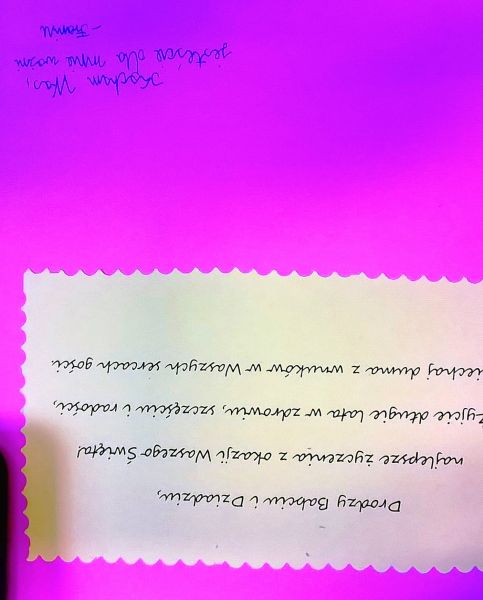 Drodzy Babciu i Dziadziu,
najlepsze życzenia z okazji Waszego Święta!
Żyjcie długie lata w zdrowiu, szczęściu i radości,
niechaj duma z wnuków w Waszych sercach gości.
Kocham Was,
jesteście dla mnie ważni